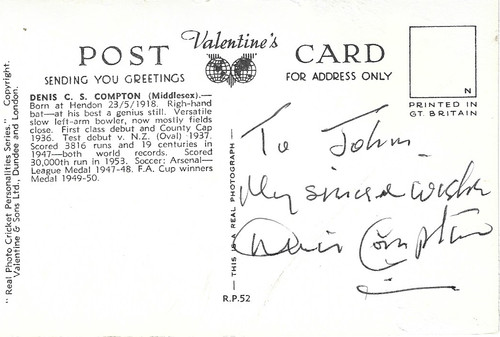 POST Valentine's CARD
SENDING YOU GREETINGS
FOR ADDRESS ONLY
N
PRINTED IN
GT. BRITAIN
DENIS C. S. COMPTON (Middlesex).—
Born at Hendon 23/5/1918. Righ-hand
bat—at his best a genius still. Versatile
slow left-arm bowler, now mostly fields
close. First class debut and County Cap
1936. Test debut v. N.Z. (Oval) 1937.
Scored 3816 runs and 19 centuries in
1947—both world records. Scored
30,000th run in 1953. Soccer: Arsenal—
League Medal 1947-48. F.A. Cup winners
Medal 1949-50.
"Real Photo Cricket Personalities Series." Copyright.
Valentine & Sons Ltd., Dundee and London.
— THIS IS A REAL PHOTOGRAPH —
R.P.52
To John
My sincere wishes
Denis Compton